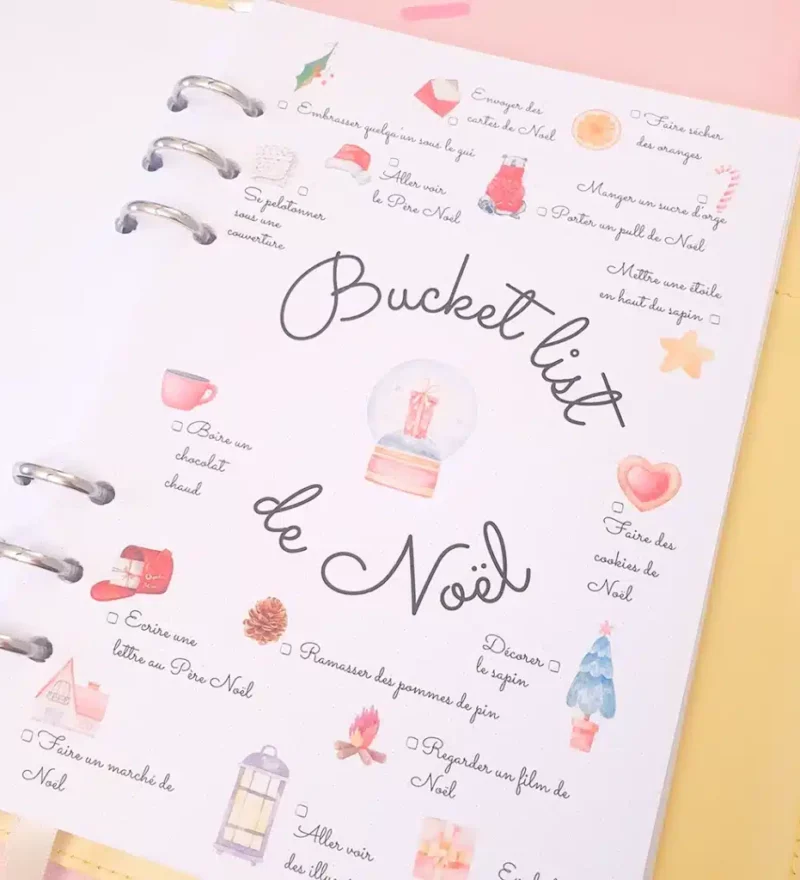 Embrasser quelqu'un sous le gui
Envoyer des
cartes de Noël
Faire sécher
des oranges
Se pelotonner
sous une
couverture
Aller voir
le Père Noël
Manger un sucre d'orge
Porter un pull de Noël
Mettre une étoile
en haut du sapin
Bucket list
de Noël
Boire un
chocolat
chaud
Faire des
cookies de
Noël
Ecrire une
lettre au Père Noël
Ramasser des pommes de pin
Décorer
le sapin
Faire un marché de
Noël
Regarder un film de
Noël
Aller voir
des